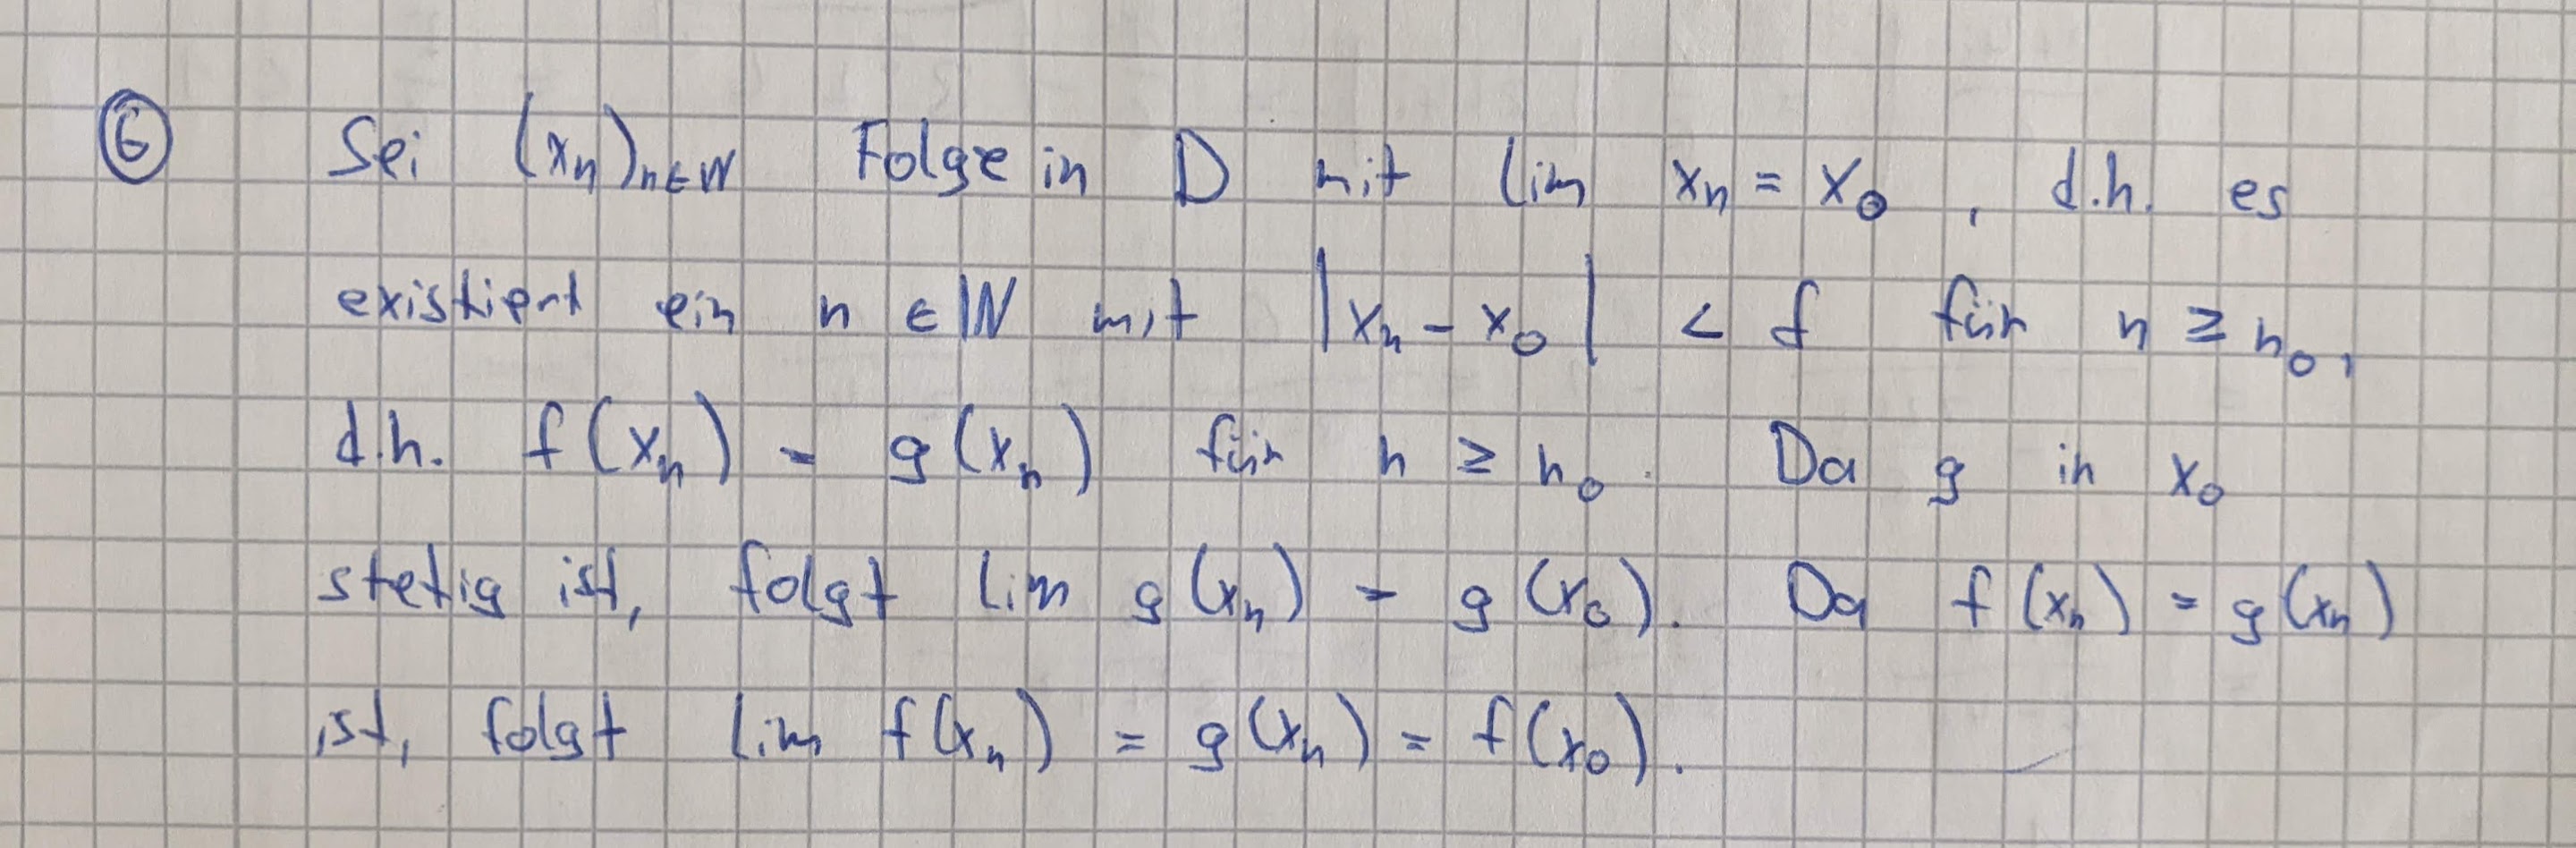 ⑥ Sei (xₙ)ₙ∈ℕ Folge in D mit lim xₙ = x₀, d.h. es
existiert ein n ∈ ℕ mit |xₙ - x₀| < f für n ≥ n₀,
d.h. f(xₙ) = g(xₙ) für n ≥ n₀. Da g in x₀
stetig ist, folgt lim g(xₙ) = g(x₀). Da f(xₙ) = g(xₙ)
ist, folgt lim f(xₙ) = g(xₙ) = f(x₀).